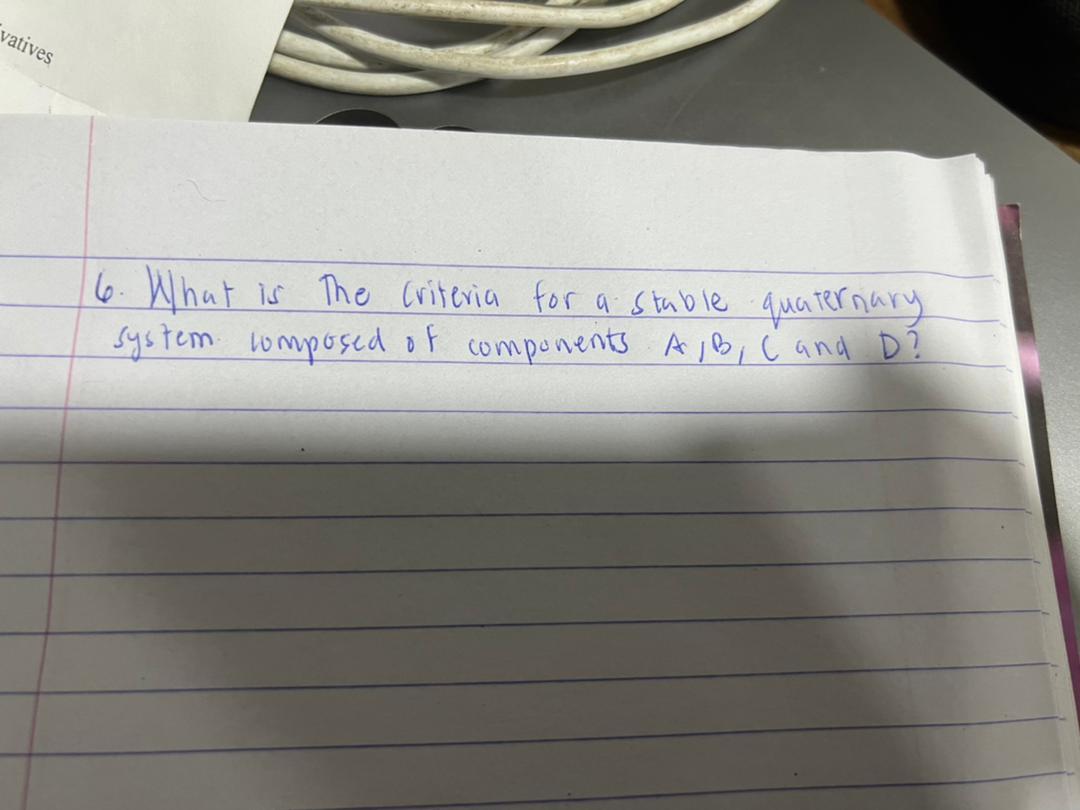 vatives
6. What is The criteria for a stable quaternary
system composed of components A, B, C and D?